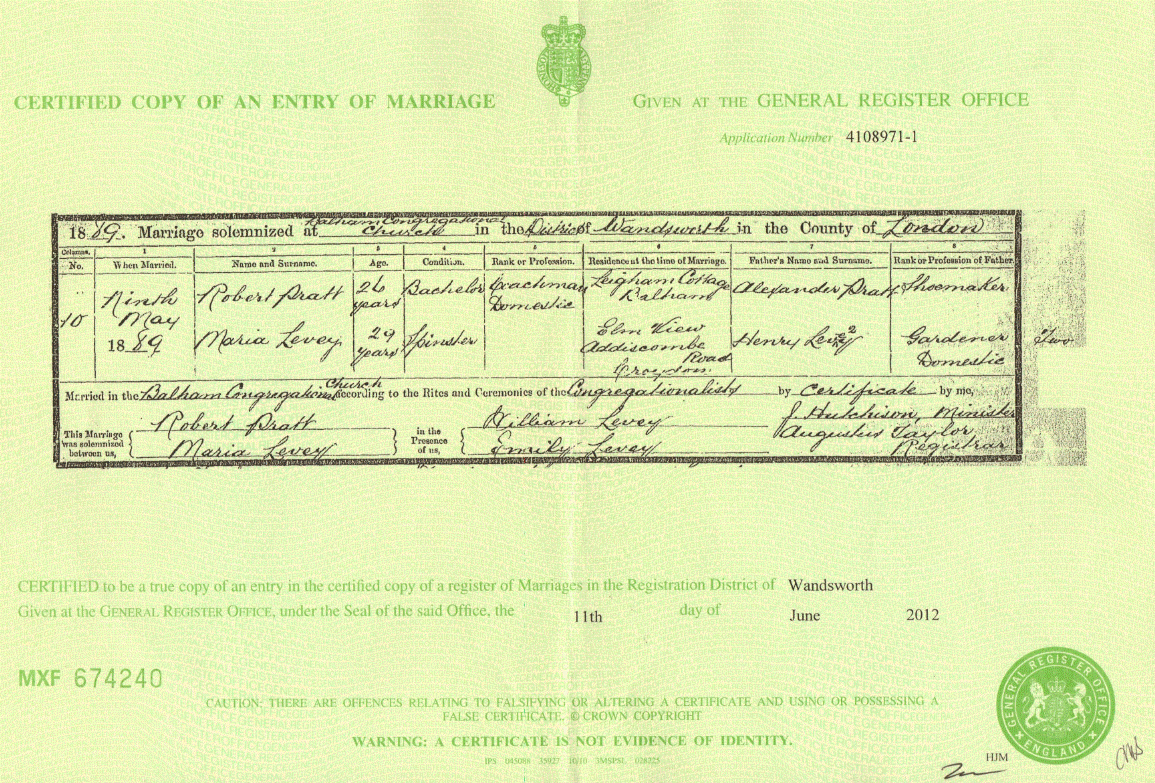 CERTIFIED COPY OF AN ENTRY OF MARRIAGE
GIVEN AT THE GENERAL REGISTER OFFICE
Application Number 4108971-1
1889. Marriage solemnized at Balham Congregational Church in the District of Wandsworth in the County of London
Columns. 1 2 3 4 5 6 7 8
No. When Married. Name and Surname. Age. Condition. Rank or Profession. Residence at the time of Marriage. Father's Name and Surname. Rank or Profession of Father.
10 Ninth May 1889
Robert Pratt 26 years Bachelor Coachman Domestic Leigham Cottage Balham Alexander Pratt Shoemaker
Maria Levey 29 years Spinster Elm View Addiscombe Road Croydon Henry Levey Gardener Domestic Two
Married in the Balham Congregational Church according to the Rites and Ceremonies of the Congregationalists by Certificate by me,
This Marriage was solemnized between us, Robert Pratt Maria Levey in the Presence of us, William Levey Emily Levey
J. Hutchison, Minister
Augustus Taylor Registrar
CERTIFIED to be a true copy of an entry in the certified copy of a register of Marriages in the Registration District of Wandsworth
Given at the GENERAL REGISTER OFFICE, under the Seal of the said Office, the 11th day of June 2012
MXF 674240
CAUTION: THERE ARE OFFENCES RELATING TO FALSIFYING OR ALTERING A CERTIFICATE AND USING OR POSSESSING A
FALSE CERTIFICATE. © CROWN COPYRIGHT
WARNING: A CERTIFICATE IS NOT EVIDENCE OF IDENTITY.
GENERAL REGISTER OFFICE
ENGLAND
HJM